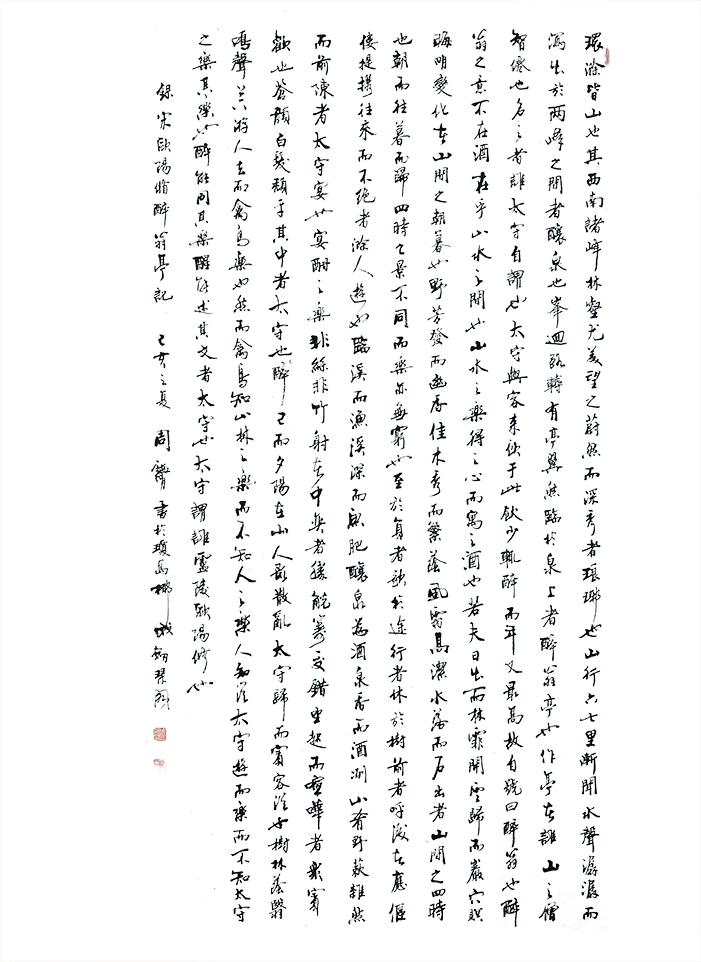 環滁皆山也其西南諸峰林壑尤美望之蔚然而深秀者琅琊也山行六七里漸聞水聲潺潺而
瀉出於兩峰之間者釀泉也峯迴路轉有亭翼然臨於泉上者醉翁亭也作亭者誰山之僧
智僊也名之者誰太守自謂也太守與客來飲于此飲少輒醉而年又最高故自號曰醉翁也醉
翁之意不在酒在乎山水之間也山水之樂得之心而寓之酒也若夫日出而林霏開雲歸而巖穴暝
晦明變化者山間之朝暮也野芳發而幽香佳木秀而繁蔭風霜高潔水落而石出者山間之四時
也朝而往暮而歸四時之景不同而樂亦無窮也至於負者歌於途行者休於樹前者呼後者應傴
僂提攜往來而不絕者滁人遊也臨溪而漁溪深而魚肥釀泉為酒泉香而酒洌山肴野蔌雜然
而前陳者太守宴也宴酣之樂非絲非竹射者中奕者勝觥籌交錯坐起而諠嘩者衆賓
歡也蒼顏白髮頹乎其中者太守也醉已而夕陽在山人影散亂太守歸而賓客從也樹林蔭翳
鳴聲上下游人去而禽鳥樂也然而禽鳥知山林之樂而不知人之樂人知從太守遊而樂而不知太守
之樂其樂也醉能同其樂醒能述其文者太守也太守謂誰廬陵歐陽修也
錄宋歐陽脩醉翁亭記 己亥之夏 周 書於瓊島椰城 琴閣